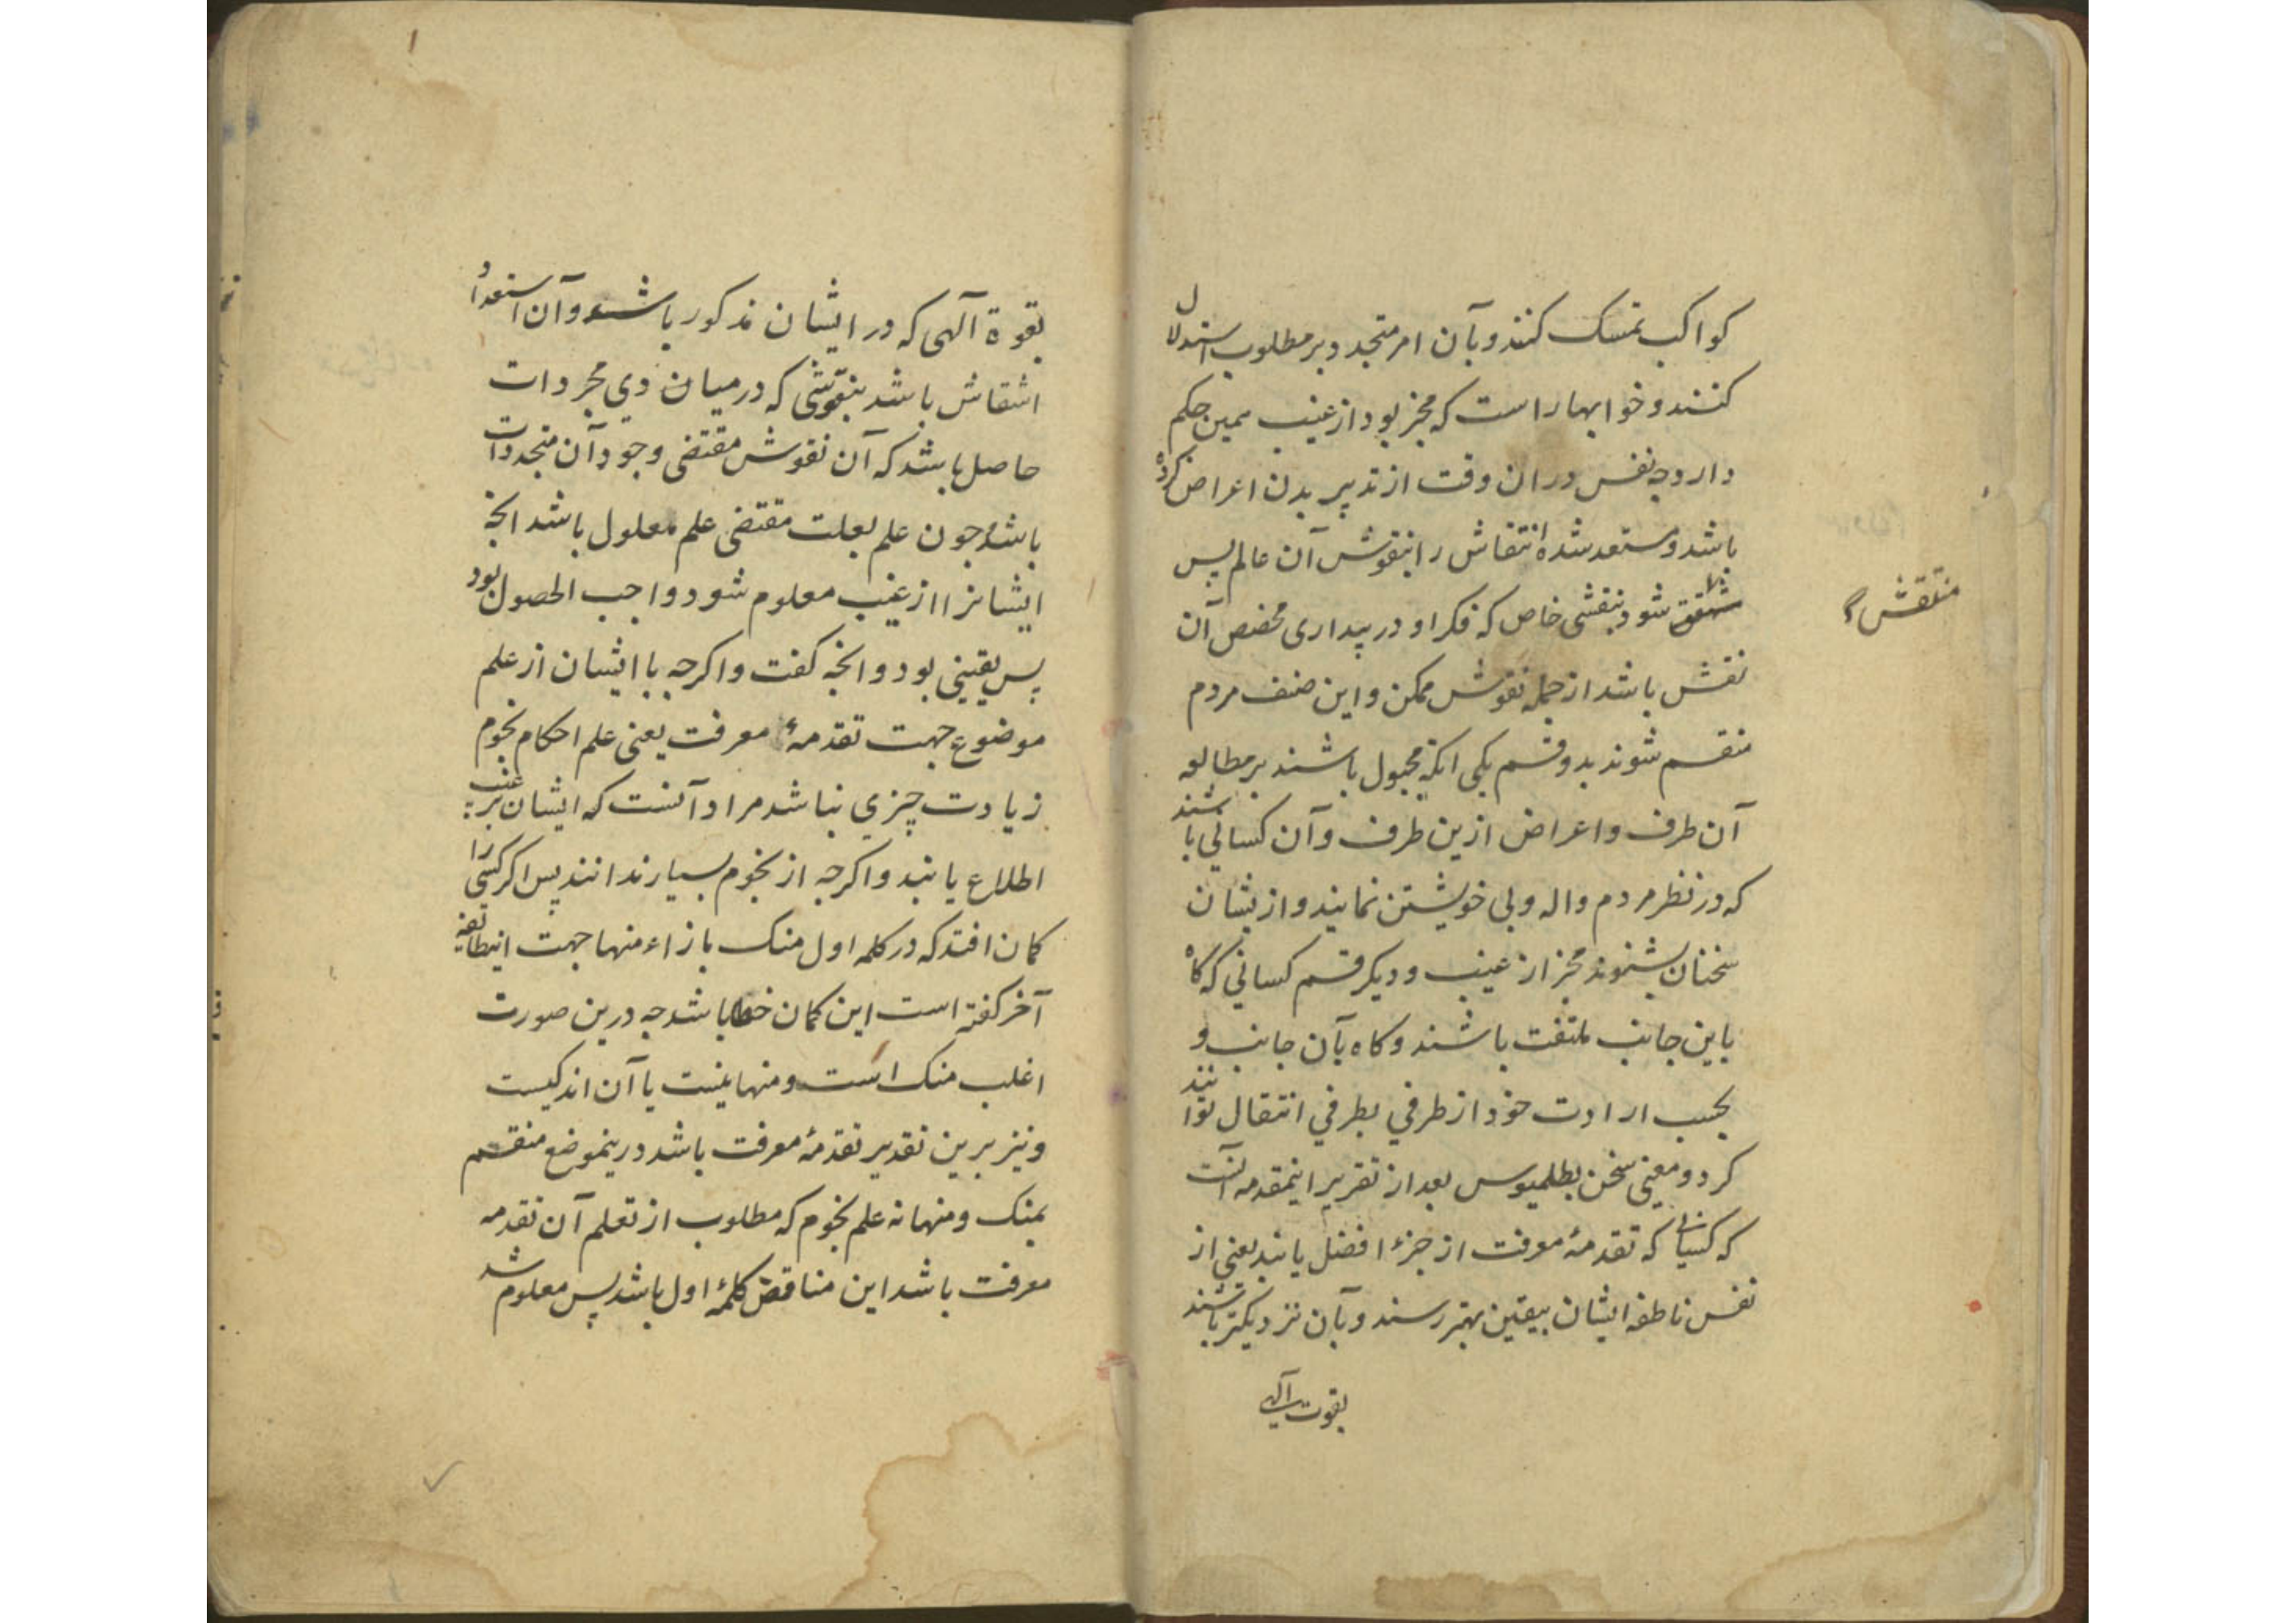 کواکب تمسک کنند و بآن امر متجدد بر مطلوب استدلال
کنند و خوابهاء راست که مخبر بود از غیب همین حکم
دارد چه نفس در ان وقت از تدبیر بدن اعراض کرده
باشد و مستعد شده انتقاش را بنقوش آن عالم پس
شود بنقشی خاص که فکر او در بیداری مخصص آن
منتقش
نقش باشد از جمله نقوش ممکن و این صنف مردم
منقسم شوند بدو قسم یکی انکه مجبول باشند بر مطالعه
آن طرف و اعراض ازین طرف و آن کسانی باشند
که در نظر مردم واله و بی خویشتن نمایند و ازیشان
سخنان شنوند مخبر از غیب و دیکر قسم کسانی که کاه
باین جانب ملتفت باشند و کاه بآن جانب و
بحسب ارادت خود از طرفی بطرفی انتقال توانند
کرد و معنی سخن بطلمیوس بعد از تقریر اینمقدمه آنست
که کسانی که تقدمهٔ معرفت از جزء افضل یابند یعنی از
نفس ناطقه ایشان بیقین بهتر رسند و بآن نزدیکتر باشند
بقوت آلهی
بقوة آلهی که در ایشان مذکور باشد و آن استعداد
انتقاش باشد بنقوشی که در میان ذی مجردات
حاصل باشد که آن نقوش مقتضی وجود آن متجددات
باشد و چون علم بعلت مقتضی علم معلول باشد انچه
ایشانرا از غیب معلوم شود واجب الحصول بود
پس یقینی بود و انچه کفت و اکرچه با ایشان از علم
موضوع جهت تقدمهٔ معرفت یعنی علم احکام نجوم
زیادت چیزی نباشد مراد آنست که ایشان بر غیب
اطلاع یابند و اکرچه از نجوم بسیار ندانند پس اکر کسی را
کمان افتد که در کلمه اول منک بازاء منها جهت اینطایفه
آخر کفته است این کمان خطا باشد چه درین صورت
اغلب منک است و منها نیست یا آن اندکیست
و نیز برین تقدیر تقدمهٔ معرفت باشد درینموضع منقسم
بمنک و منها نه علم نجوم که مطلوب از تعلم آن تقدمه
معرفت باشد این مناقض کلمهٔ اول باشد پس معلوم شد